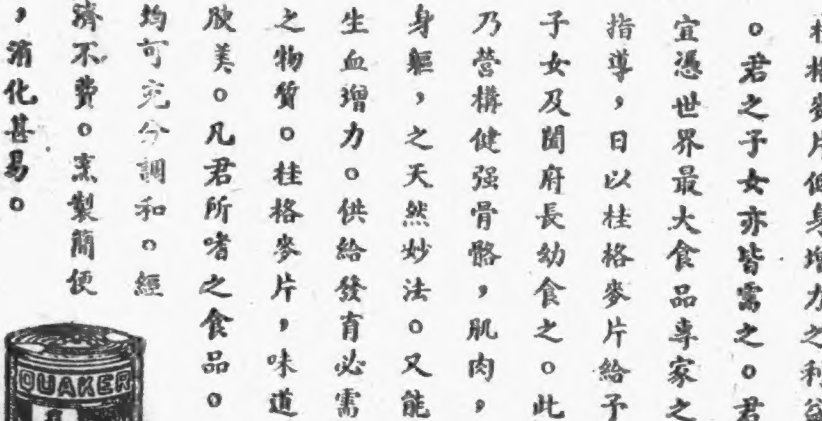 桂格麥片健身增力之利益
。君之子女亦皆需之。君
宜憑世界最大食品專家之
指導，日以桂格麥片給予
子女及闔府長幼食之。此
乃營構健强骨骼，肌肉，
身軀，之天然妙法。又能
生血增力。供給發育必需
之物質。桂格麥片，味道
腴美。凡君所嗜之食品。
均可充分調和。經
濟不費。烹製簡便
，消化甚易。
QUAKER